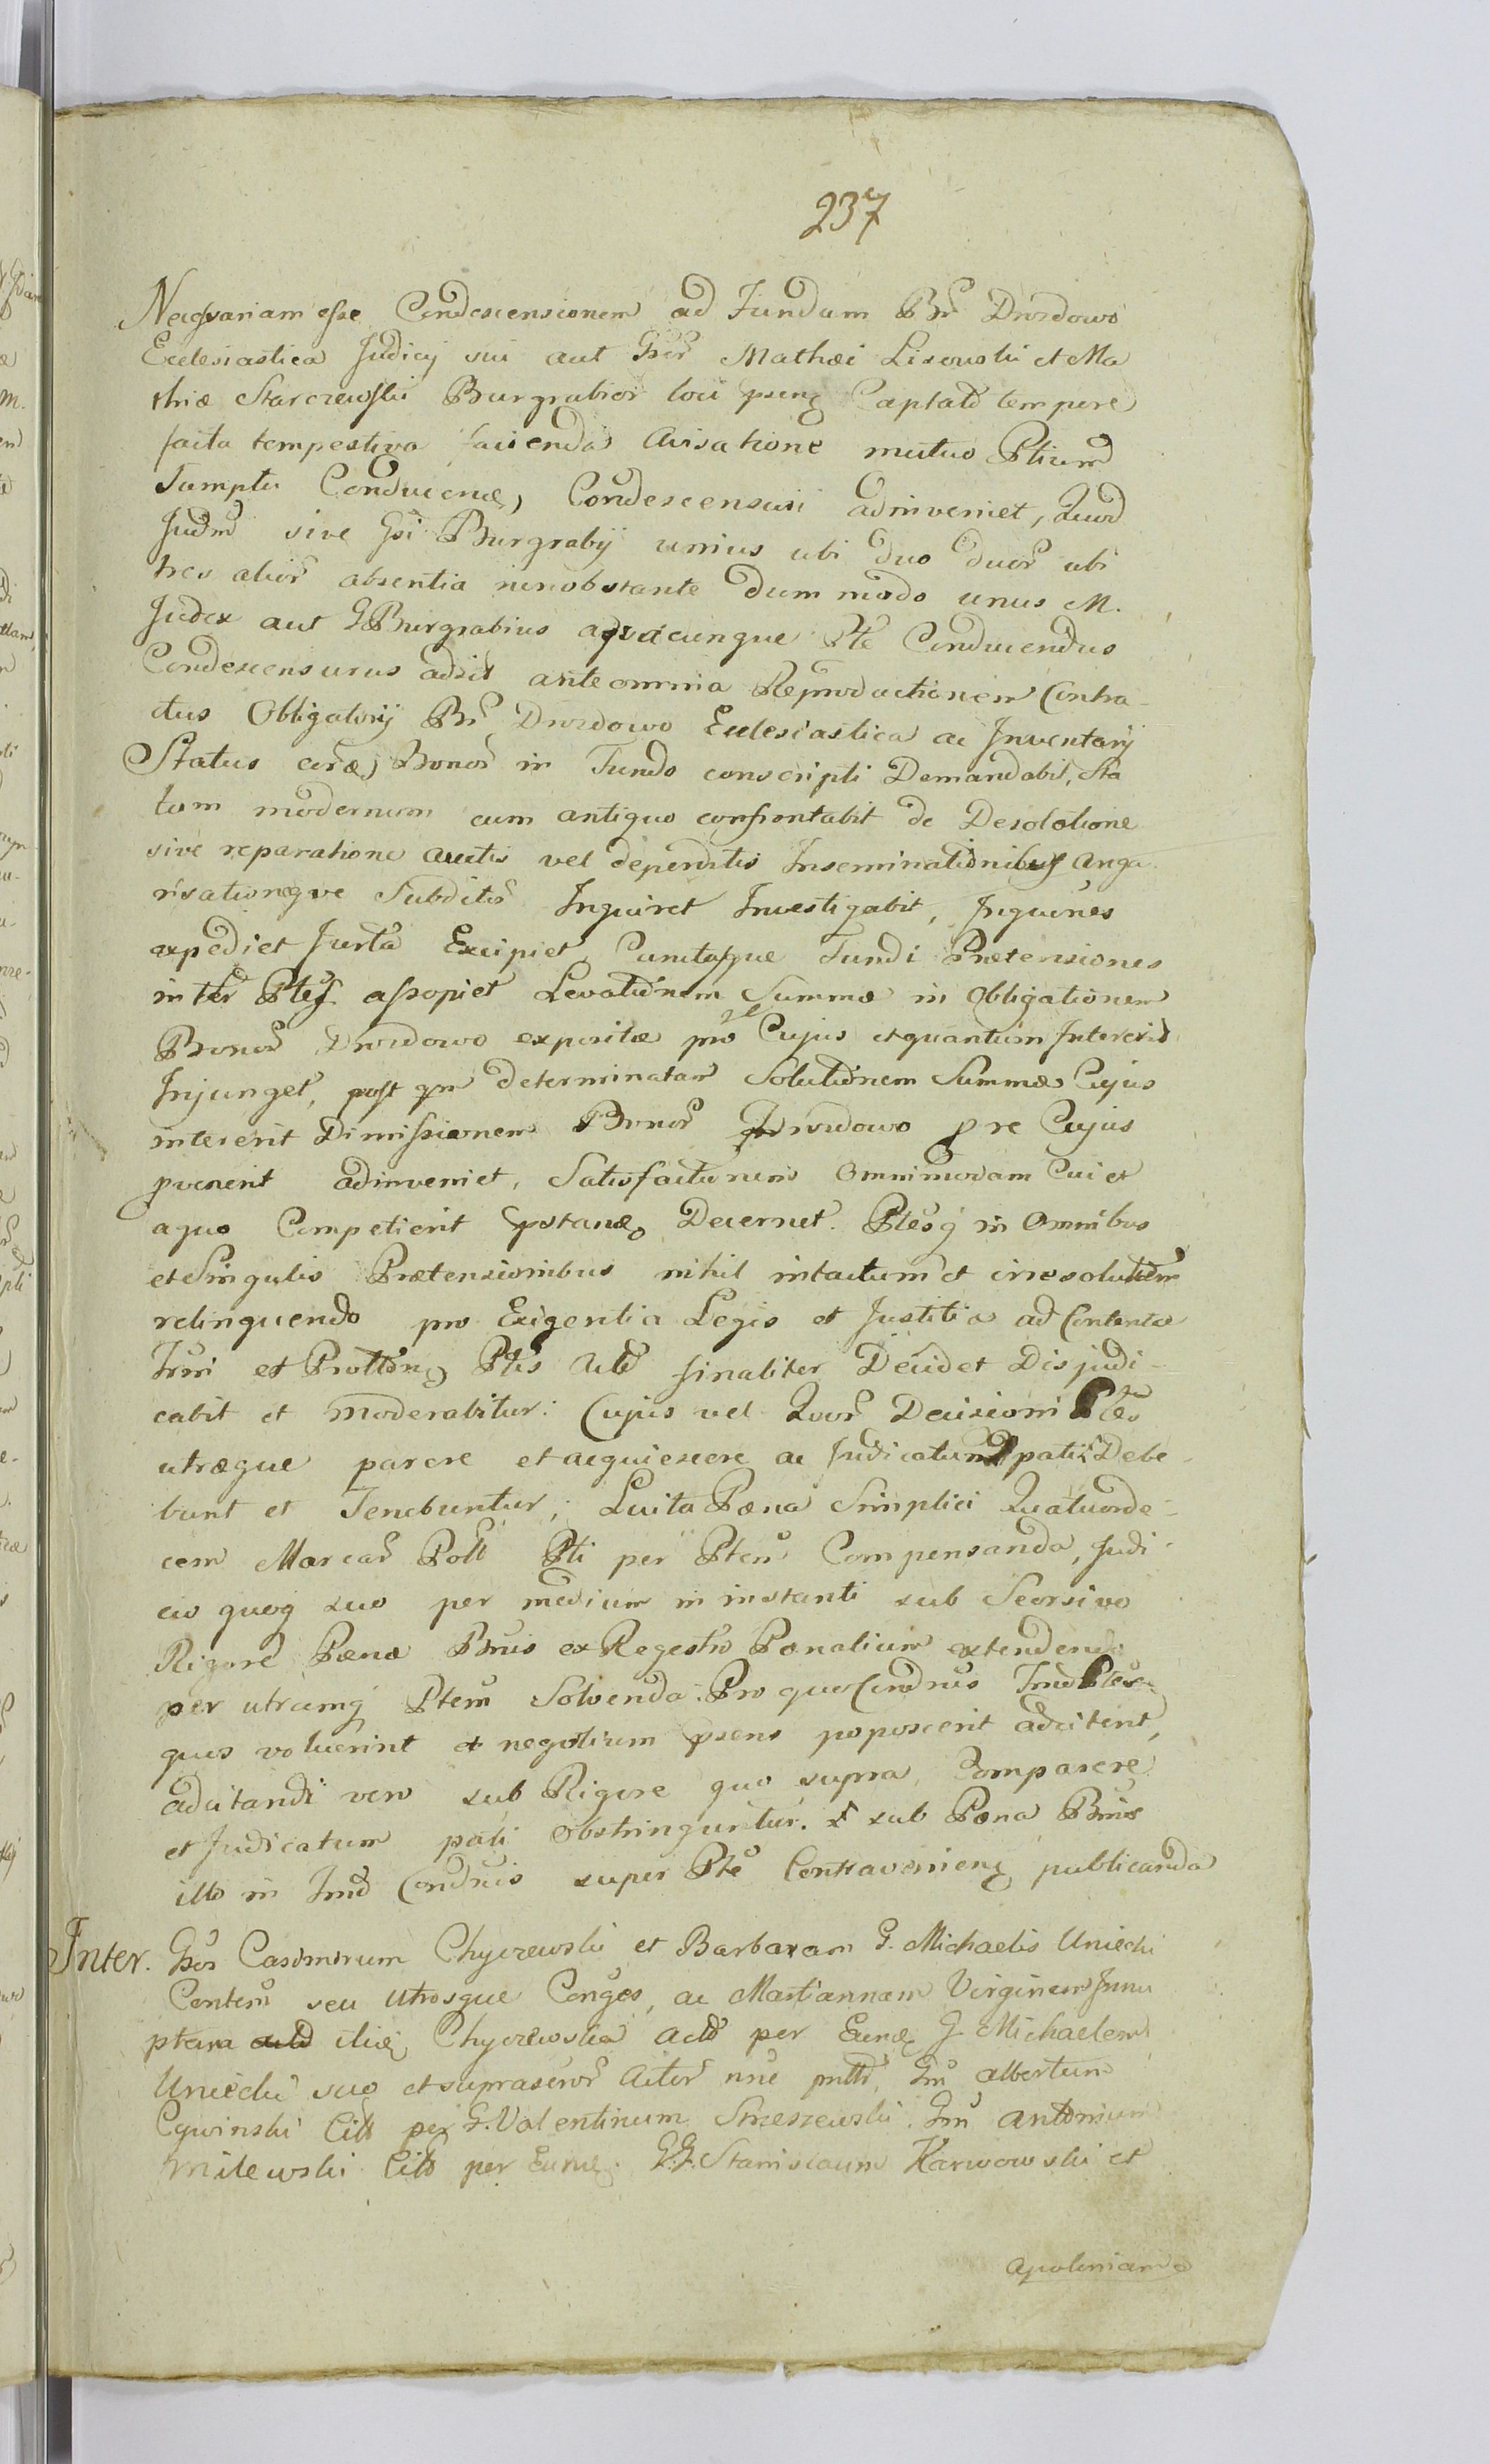 237
Necessariam esse Condescensionem ad Fundum Br Drozdowo
Ecclesiastica Judicij sui aut Gsor Mathæi Lisowski et Ma
thiæ Starczewski Burgrabior loci psenę Captato tempore
facta tempestiva facienda Avisatione mutuo Ptium
Sumptu Conducenæ, Condescensuri adinveniet, Quod
Judm sive Gsi Burgrabij unius ubi duo duor ubi
tres alior absentia nonobstante dum modo unus M.
Judex aut G Burgrabius a quacunque Pte Conducendus
Condescensurus adsit ante omnia Reproductionem Contra-
ctus Obligatorij Br Drozdowo Ecclesiastica ac Inventarij
Status eord, Bonor in Fundo conscripti Demandabit, Sta
tum modernum cum antiquo confrontabit de Desolatione
sive reparatione auctis vel deperditis Inseminationibus anga
risationeqve Subditor Inquiret Investigabit, Inquines
expediet Jurta Excipiet, Cunctasque Fundi Prætensiones
inter Ptes assopiet Levationem Summæ in Obligationem
Bonor Drozdowo expositæ pro Cujus et quantum Intererit
Injunget, post qm determinatam Solutionem Summæ Cujus
intererit Dimissionem Bonor Drozdowo pre Cujus
pvenerit adinveniet, Satisfactionem Omnimodam Cui et
a quo Competierit pstanæ Decernet. Ptesq in Omnibus
et Singulis Prætensionibus nihil intactum et irresolutum
relinquendo pro Exigentia Legis et Justitia ad Contenta
Trmi et Prottonę Ptis Acto finaliter Decidet Disjudi-
cabit et Moderabitur: Cujus vel Quor Decisioni Ptes
utræque parere et acquiescere ac Judicatum pati Debe-
bunt et Tenebuntur, Luita Pæna Simplici Quatuorde-
cem Marcar Poll Pti per Ptem Compensanda, Judi-
cio quoq suo per medium in instanti sub Seorsivo
Rigore Pænæ Bnis ex Regestro Pænalium extendendæ
per utramq Ptem Solvenda. Pro quo Condnis Tmo Ptes
quos voluerint et negotium psens poposcerit adcitent,
adcitandi vero sub Rigore quo supra, Comparere
et Judicatum pati Obstringuntur. & sub Pæna Bnis
illo in Tmo Condnis super Pte Contravenienę publicanda
Inter. Gsos Casimirum Chyczewski et Barbaram G. Michaelis Uniecki
Contem seu Utrosque Conges, ac Mariannam Virginem Innu
ptam itid Chyczewskie Acto per Eund G Michaelem
Uniecki suo et suprascror Actor nne pntto, Gm Albertum
Cywinski Citt per G. Valentinum Strzeszewski. Gm Antonium
Milewski Citt per Eund. G.G. Stanislaum Karwowski et
Apoloniam